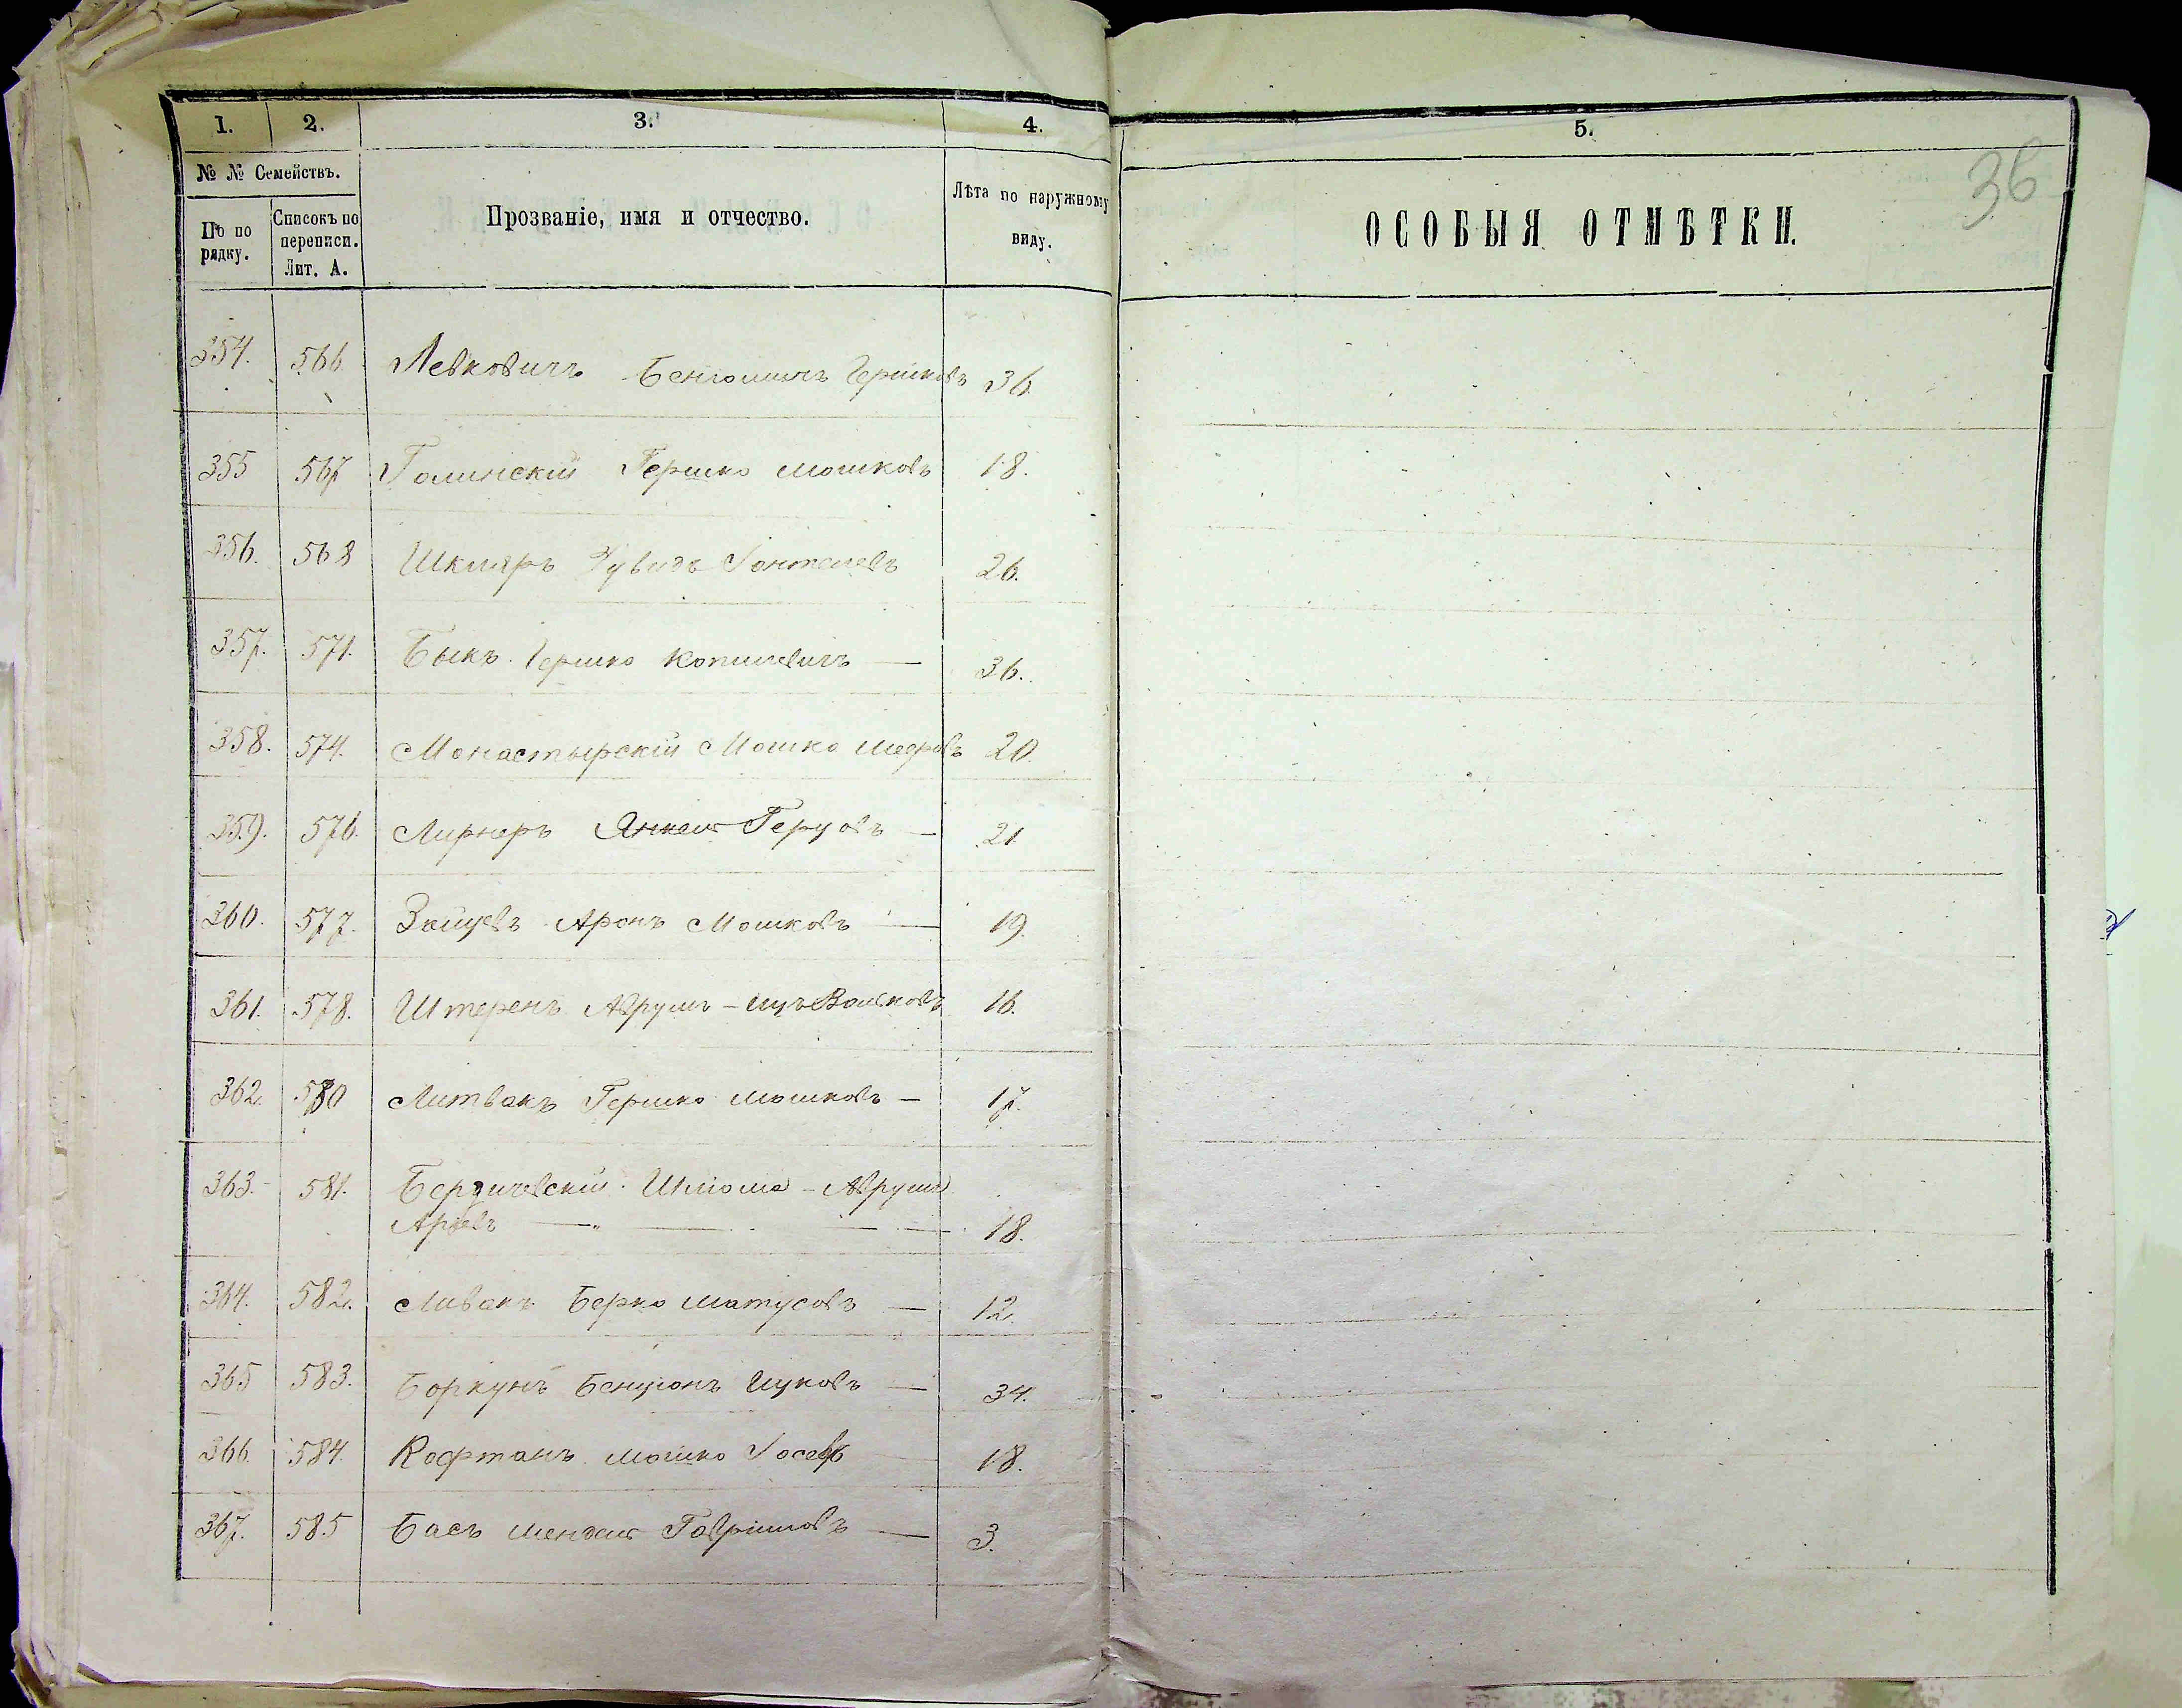 1. 2. 3. 4. 5.
36
№ № Семействъ.
По по рядку. Списокъ по переписи. Лит. А. Прозваніе, имя и отчество. Лѣта по наружному виду. ОСОБЫЯ ОТМѢТКИ.
354. 566. Левковичъ Беніоминъ Гершковъ 36.
355 567 Голинскій Гершко Мошковъ 18.
356. 568 Шкляръ
26.
357. 571. Быкъ Гершко Копилевичъ — 36.
358. 574. Монастырскій Мошко 20.
359. 576. Лирнеръ Янкель Герцовъ — 21
360. 577. Зайцевъ Аронъ Мошковъ — 19.
361. 578. Штеренъ Аврумъ-Ицъ Вольковъ 16.
362. 580 Литвакъ Гершко Мошковъ — 17.
363. 581. Бердичевскій Шліома-Аврумъ
Аріевъ — 18.
364. 582. Ливакъ Берко Матусовъ — 12.
365 583. Боркунъ Бенціонъ Ицковъ — 34.
366. 584. Кофтанъ Мошко Іосевъ 18.
367. 585 Басъ Мендель Гавріиловъ — 3.